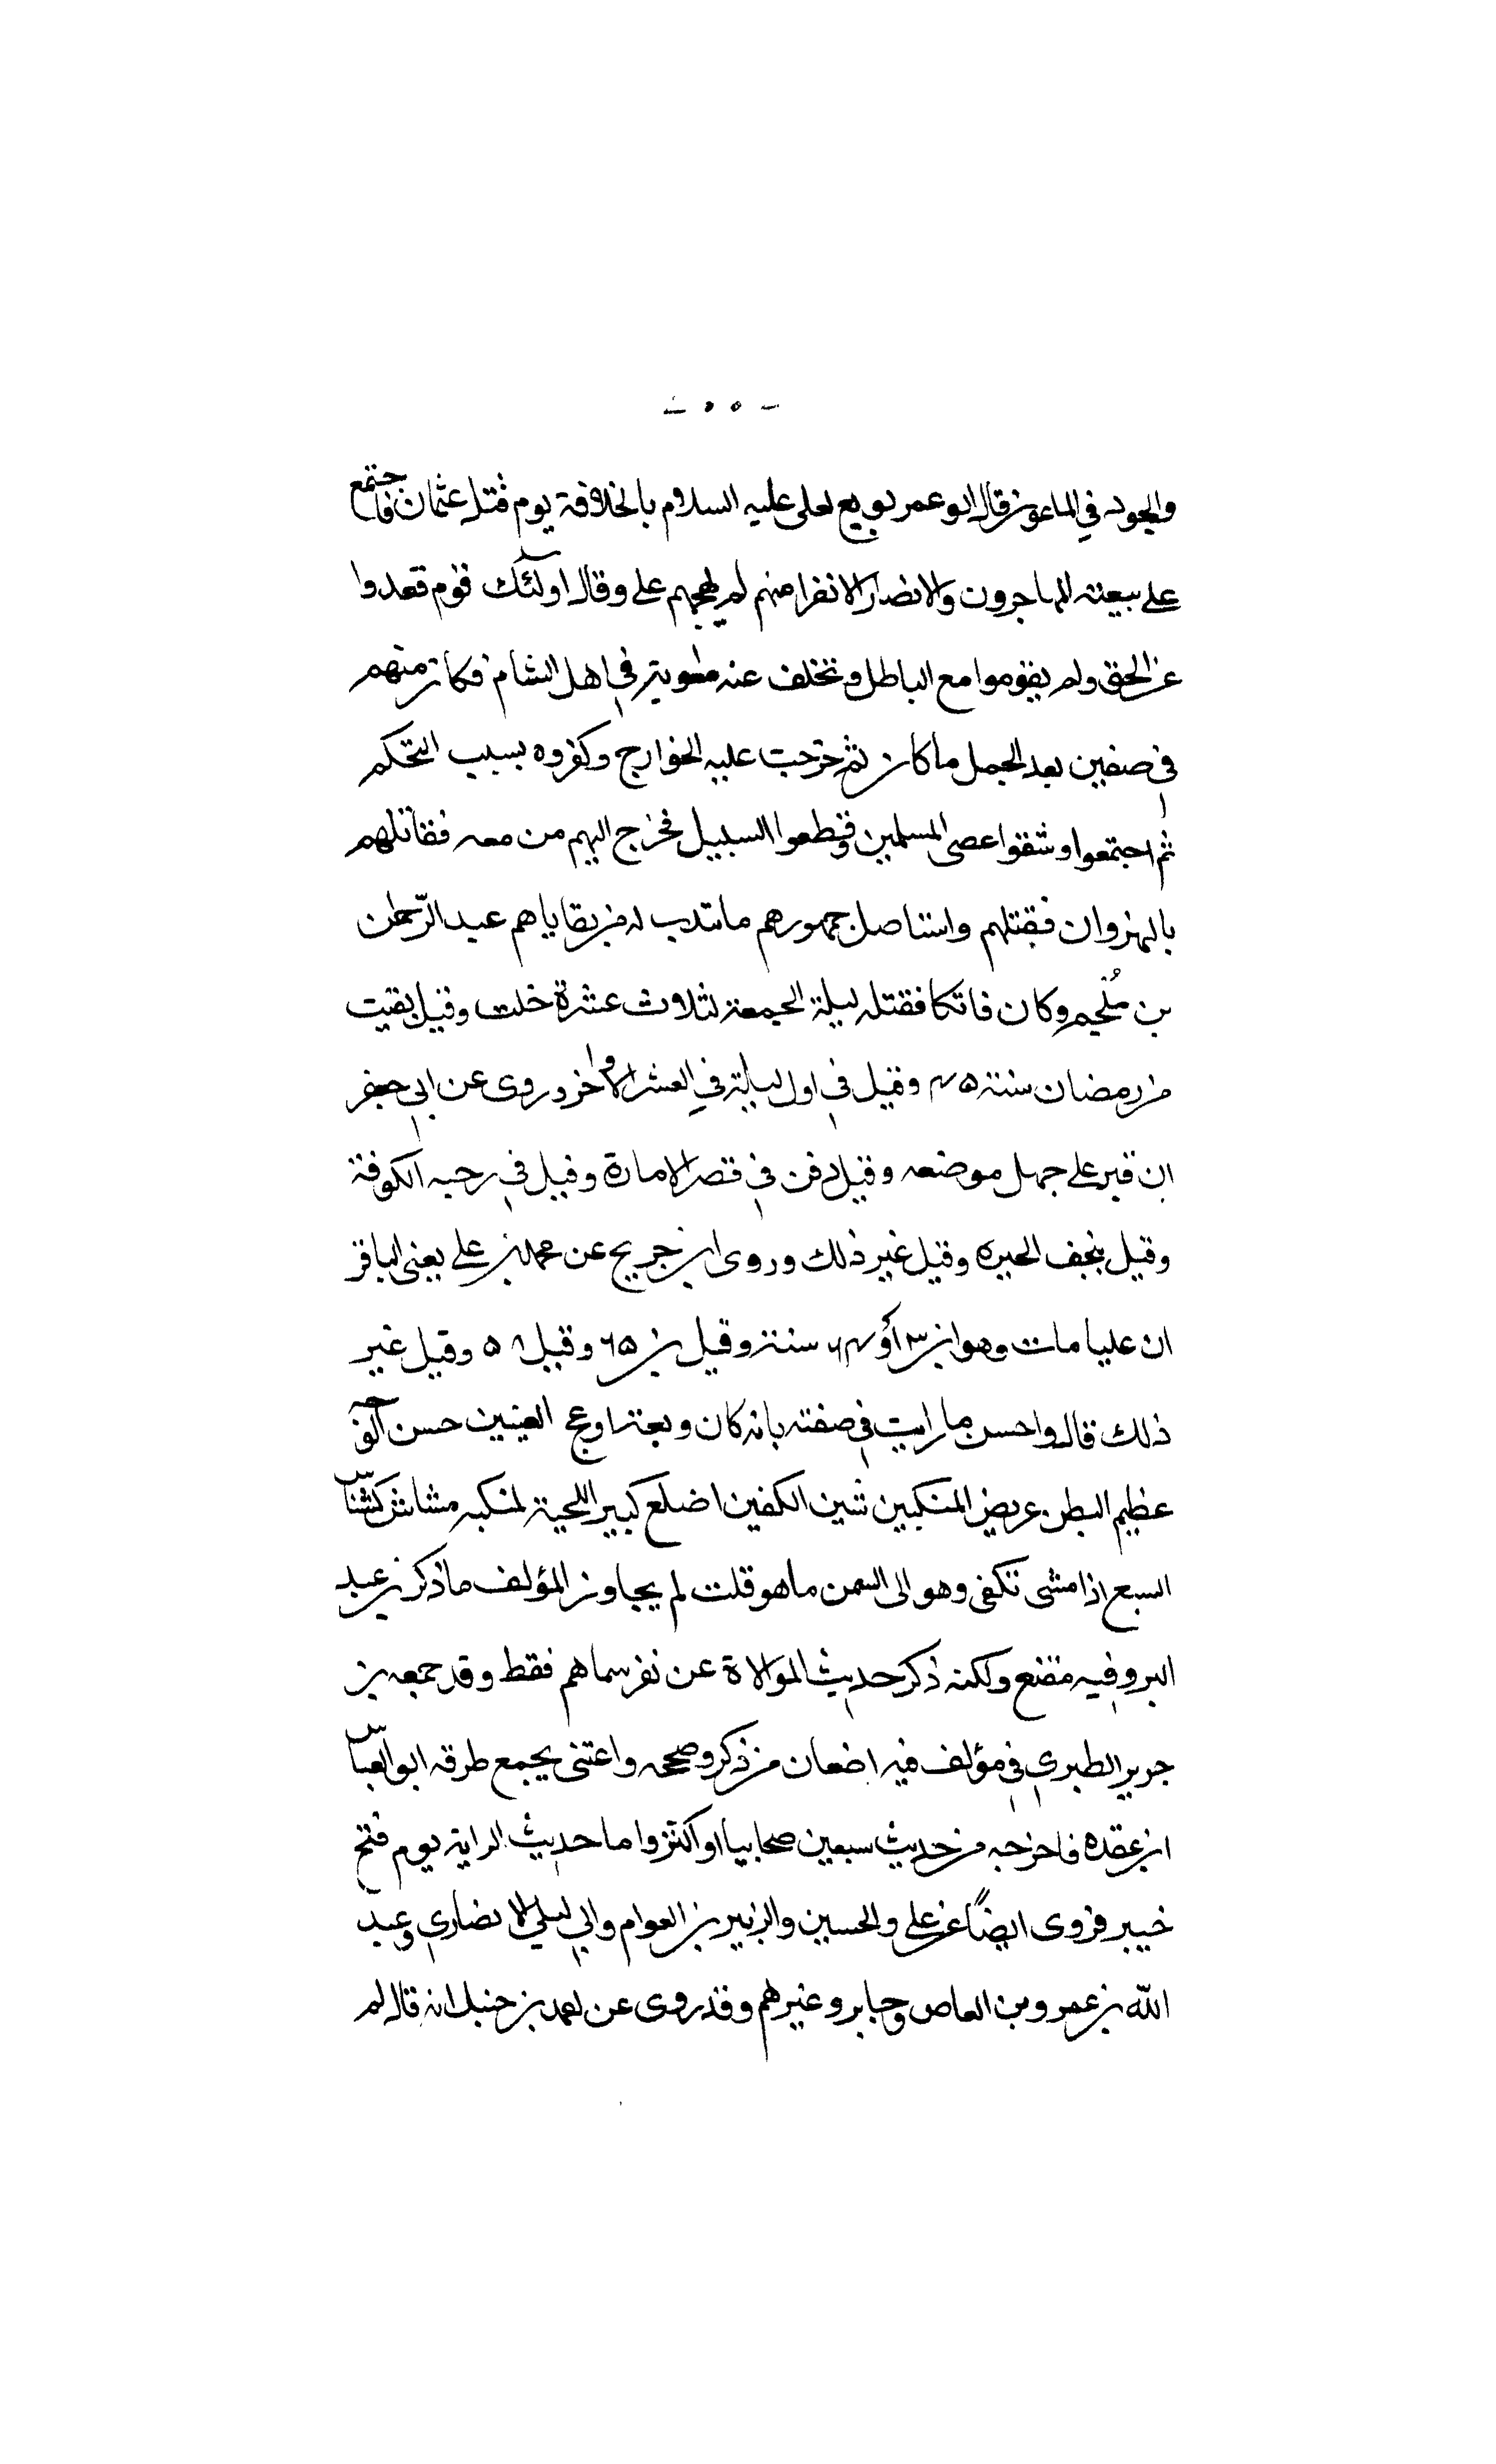 والجود في الماعون قال ابو عمر بويع لعلى عليه السلام بالخلافة يوم قتل عثمان فاجتمع
على بيعته المهاجرون والانصار الا نفرا منهم لم يهجهم على وقال اولئك قوم قعدوا
عن الحق ولم يقوموا مع الباطل وتخلف عنه معوية في اهل الشام فكان منهم
في صفين بعد الجمل ما كان ثم خرجت عليه الخوارج وكفروه بسبب التحكم
ثم اجتمعوا وشقوا عصى المسلمين وقطعوا السبيل فخرج اليهم من معه فقاتلهم
بالنهروان فقتلهم واستاصل جمهورهم فانتدب له من بقاياهم عبد الرّحمن
بن مُلجم وكان فاتكا فقتله ليلة الجمعة لثلاث عشرة خلت وقيل بقيت
من رمضان سنة ۴۵ وقيل في اول ليلة في العشر الاواخر وروى عن ابي جعفر
ان قبر على جهل موضعه وقيل دفن في قصر الامارة وقيل في رحبه الكوفة
وقيل بنجف الحيره وقيل غير ذلك وروى ابن جريج عن محمد بن على يعنى الباقر
ان عليا مات وهو ابن ۶۳ أو ۶۴ سنة وقيل بن ۶۵ وقيل ۵۸ وقيل غير
ذلك قال واحسن ما رايت في صفته بانه كان ربعة ادعج العينين حسن الوجه
عظيم البطن عريض المنكبين شئن الكفين اضلع كبير اللحية لمنكبه مشاش كمشاس
السبع اذا مشى تكفى وهو الى السمن ما هو قلت لم يجاوز المؤلف ما ذكر بن عبد
البر وفيه مقنع ولكنه ذكر حديث الموالاة عن نفر سماهم فقط وقد جمعه بن
جرير الطبري في مؤلف فيه اضعاف من ذكر وصححه واعتنى بجمع طرقه ابو العباس
ابن عقده فاخرجه من حديث سبعين صحابيا او اكثر واما حديث الراية يوم فتح
خيبر فروى ايضًا عن على والحسين والزبير بن العوام وابي ليلى الانصاري وعبد
الله بن عمرو بن العاص وجابر وغيرهم وقد روى عن احمد بن حنبل انه قال لم